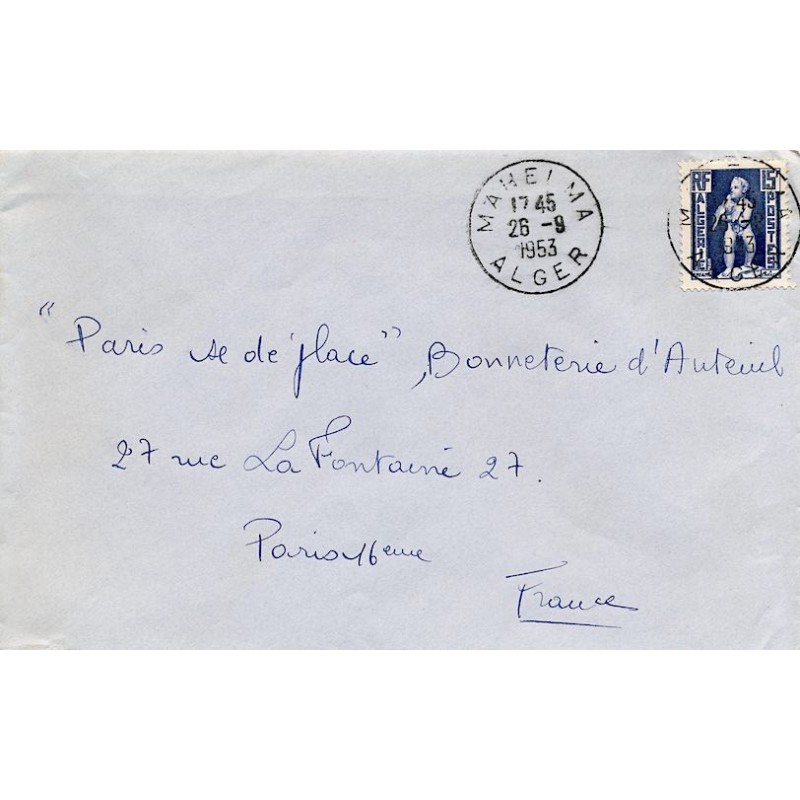 MAHELMA
17 45
26 -9
1953
ALGER
RF
15F
ALGERIE
POSTES
"Paris se de place", Bonneterie d'Auteuil
27 rue La Fontaine 27.
Paris 16eme
France